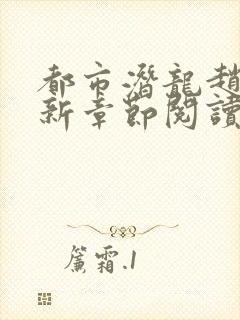 都市潛龍趙
新章節閱讀
簾霜.1